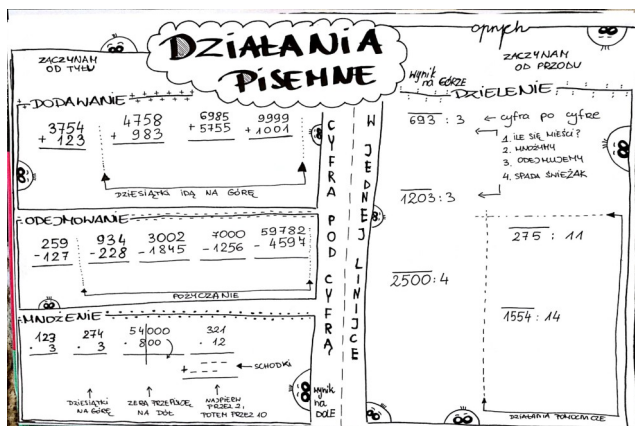 DZIAŁANIA
PISEMNE
ZACZYNAM
OD TYŁU
DODAWANIE
3754
+ 123
4758
+ 983
6985
+ 5755
9999
+ 1001
DZIESIĄTKI IDĄ NA GÓRĘ
ODEJMOWANIE
259
-127
934
-228
3002
-1845
7000
-1256
59782
- 4597
POŻYCZANIE
MNOŻENIE
123
· 3
274
· 3
54000
· 800
321
· 12
+
SCHODKI
DZIESIĄTKI
NA GÓRĘ
ZERA PRZEPISUJĘ
NA DÓŁ
NAJPIERW
PRZEZ 2,
POTEM PRZEZ 10
wynik
na
DOLE
CYFRA POD CYFRĄ?
W JEDNEJ LINIJCE
ZACZYNAM
OD PRZODU
wynik
na GÓRZE
DZIELENIE
693 : 3
cyfra po cyfrze
1. ILE SIĘ MIEŚCI?
2. MNOŻYMY
3. ODEJMUJEMY
4. SPADA ŚNIEŻAK
1203 : 3
275 : 11
2500 : 4
1554 : 14
DZIAŁANIA POMOCNICZE